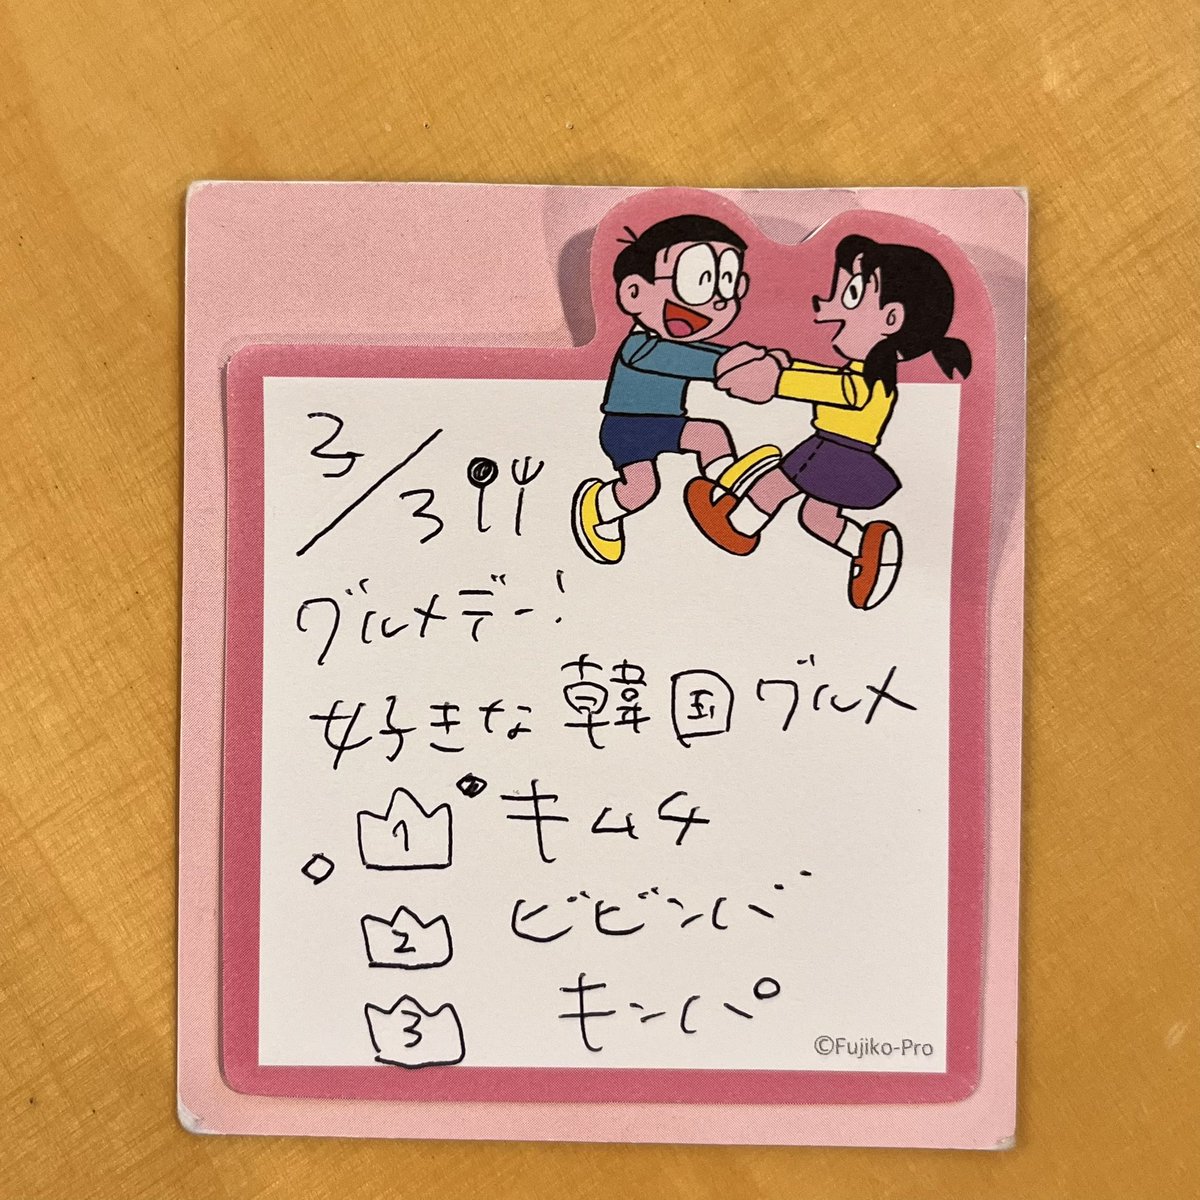 3/3
グルメデー!
好きな韓国グルメ
1 キムチ
2 ビビンバ
3 キンパ
©Fujiko-Pro